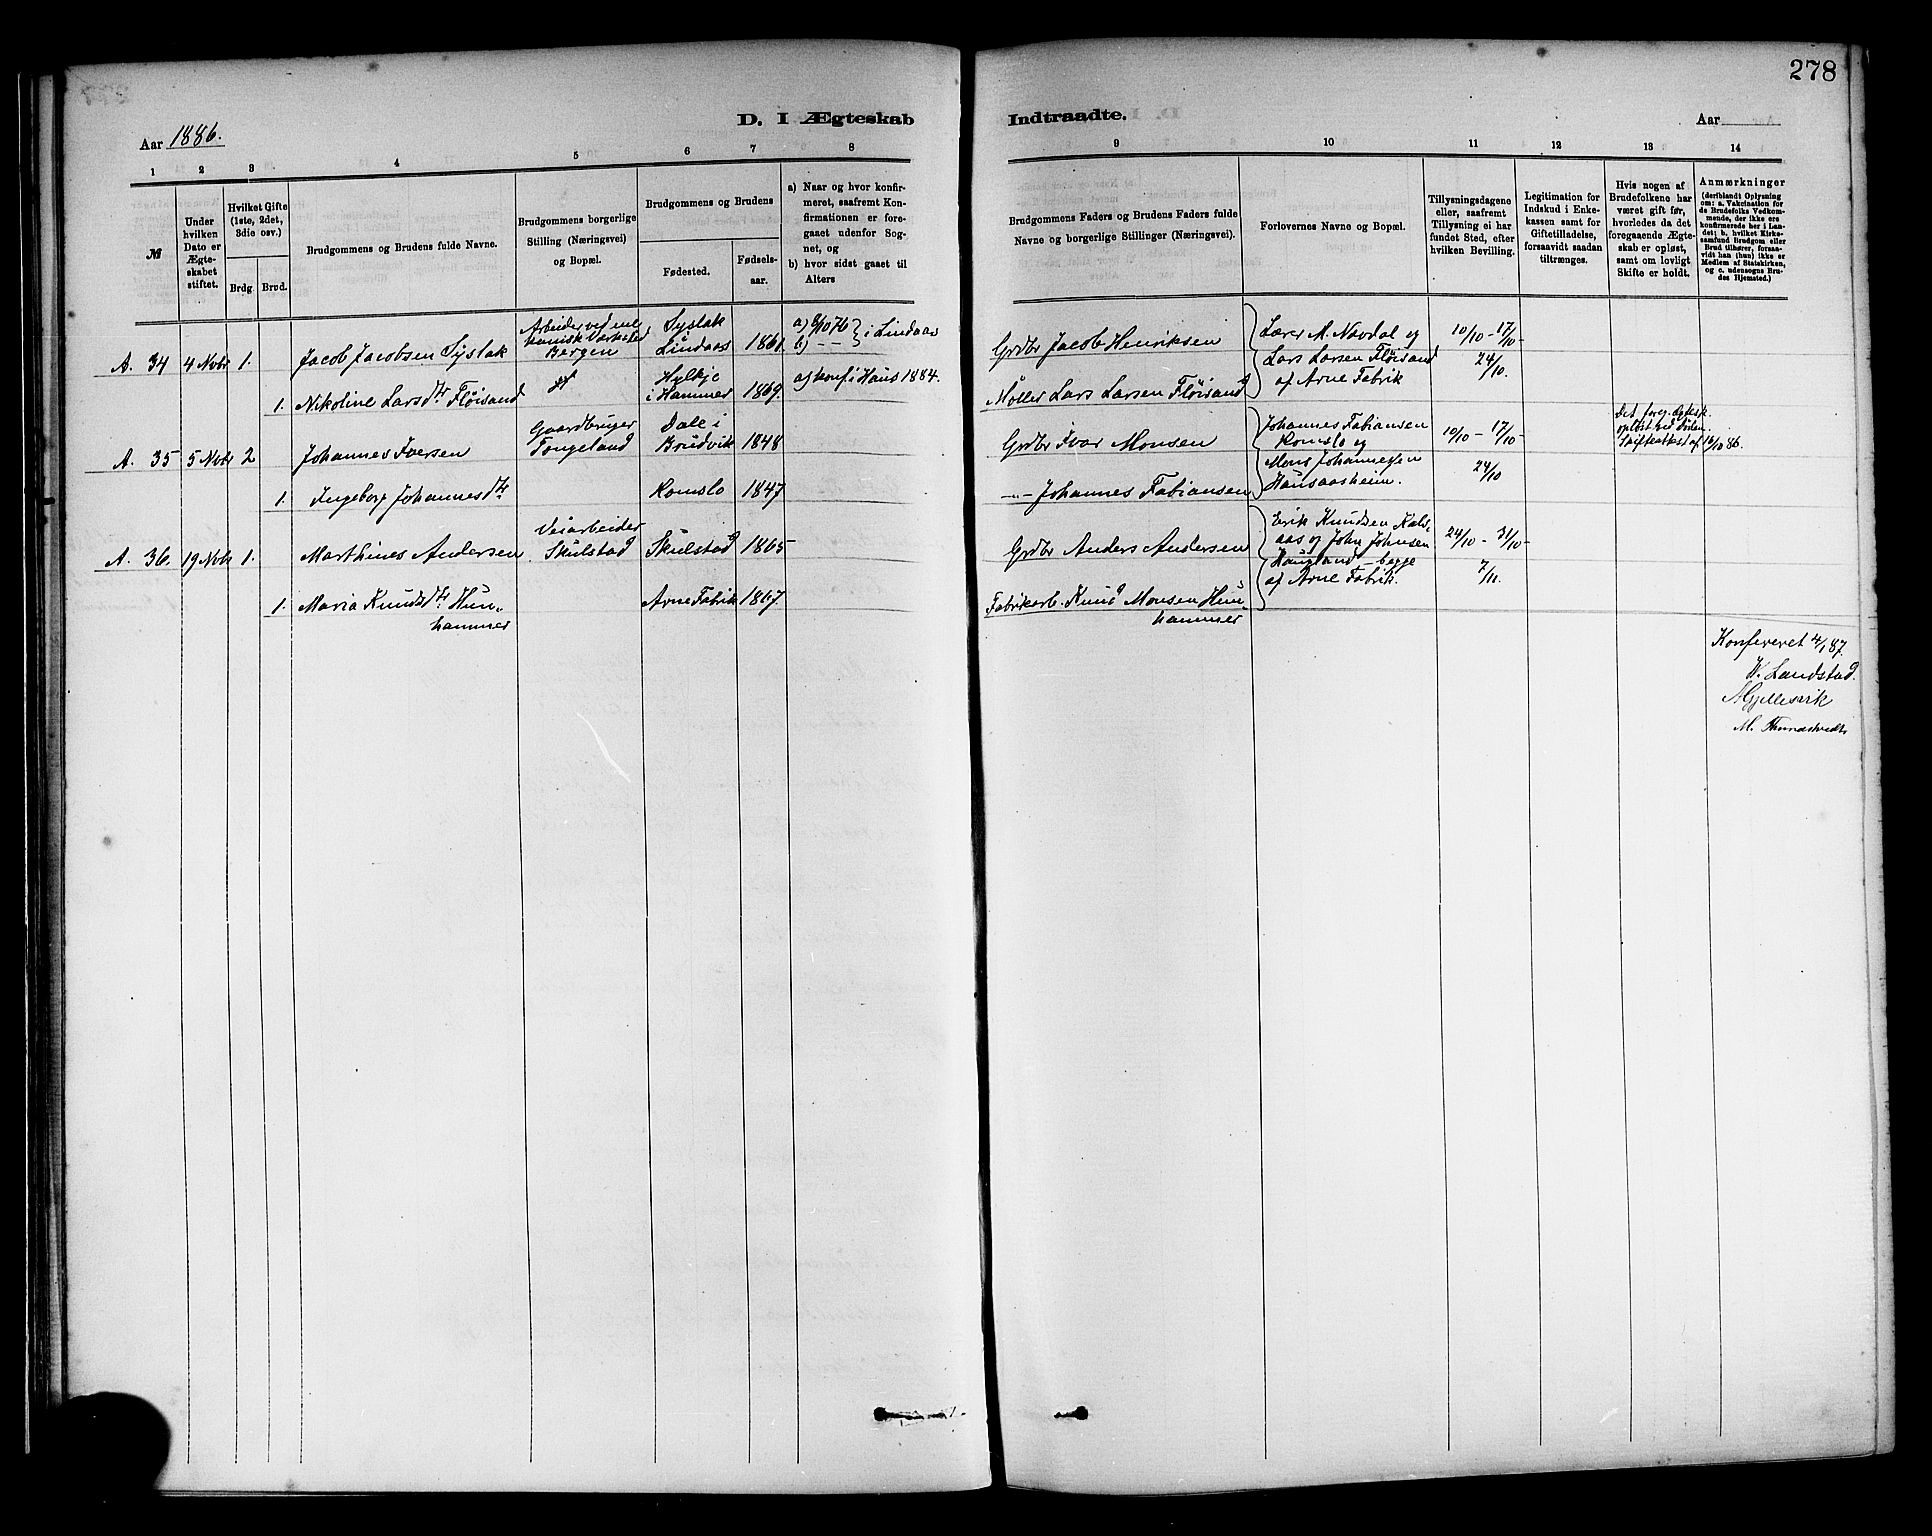 278
D. I Ægteskab
Indtraadte.
Aar 1886.
Aar
1 2 3 4 5 6 7 8
9 10 11 12 13 14
№
Under
hvilken
Dato er
Ægte-
skabet
stiftet.
Hvilket Gifte
(1ste, 2det,
3die osv.)
Brdg. Brud.
Brudgommens og Brudens fulde Navne.
Brudgommens borgerlige
Stilling (Næringsvei)
og Bopæl.
Brudgommens og Brudens
Fødested.
Fødsels-
aar.
a) Naar og hvor konfir-
meret, saafremt Kon-
firmationen er fore-
gaaet udenfor Sog-
net, og
b) hvor sidst gaaet til
Alters
Brudgommens Faders og Brudens Faders fulde
Navne og borgerlige Stillinger (Næringsvei).
Forlovernes Navne og Bopæl.
Tillysningsdagene
eller, saafremt
Tillysning ei har
fundet Sted, efter
hvilken Bevilling.
Legitimation for
Indskud i Enke-
kassen samt for
Giftetilladelse,
forsaavidt saadan
tiltrænges.
Hvis nogen af
Brudefolkene har
været gift før,
hvorledes da det
foregaaende Ægte-
skab er opløst,
samt om lovligt
Skifte er holdt.
Anmærkninger
(deriblandt Oplysning
om: a. Vakcination for
de Brudefolks Vedkom-
mende, der ikke ere
konfirmerede her i Lan-
det; b. hvilket Kirke-
samfund Brudgom eller
Brud tilhører, forsaa-
vidt han (hun) ikke er
Medlem af Statskirken,
og c. udensogns Bru-
des Hjemsted.)
A. 34 4 Novbr 1. Jacob Jacobsen Syslak
Arbeider ved me-
kanisk Værksted,
Bergen
Syslak
Lindaas 1861
a) 8/10 76
b) - - } i Lindaas
Grdbr Jacob Henriksen
Lærer M. Navdal og
Lars Larsen Fløisand
af Arne Fabrik
10/10 - 17/10 -
24/10.
1. Nikoline Larsdtr Fløisand
Hylkje
i Hammer 1869.
a) konf. i Haus 1884.
Møller Lars Larsen Fløisand
A. 35 5 Nvbr 2 Johannes Iversen
Gaardbruger
Tongeland
Dale i
Brudvik 1848
Grdbr Ivar Monsen
Johannes Fabiansen
Romslo og
Mons Johannessen
Hausaasheim.
10/10 - 17/10 -
24/10
Det foreg. Ægtesk.
opløst ved Døden.
Skifteattest af 16/10 86.
1. Ingeborg Johannesdtr
Romslo 1847
-"- Johannes Fabiansen
A. 36. 19 Nvbr 1. Marthines Andersen
Veiarbeider
Skulstad
Skulstad 1865
Grdbr Anders Andersen
Erik Knudsen Kals-
aas og John Johnsen
Haugland - begge
af Arne Fabrik.
24/10 - 31/10 -
7/11.
1. Maria Knudsdtr Hun-
hammer
Arne Fabrik 1867.
Fabrikarb. Knud Monsen Hun-
hammer
Konfereret 4/1 87.
Landstad.
Gjellesvik
M.